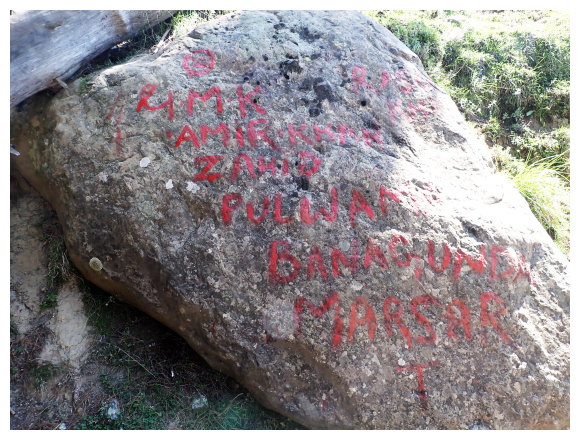 RMK
AMIR KHAN
ZAHID
PULWAMA
BANAGUNDA
MARSAR
T